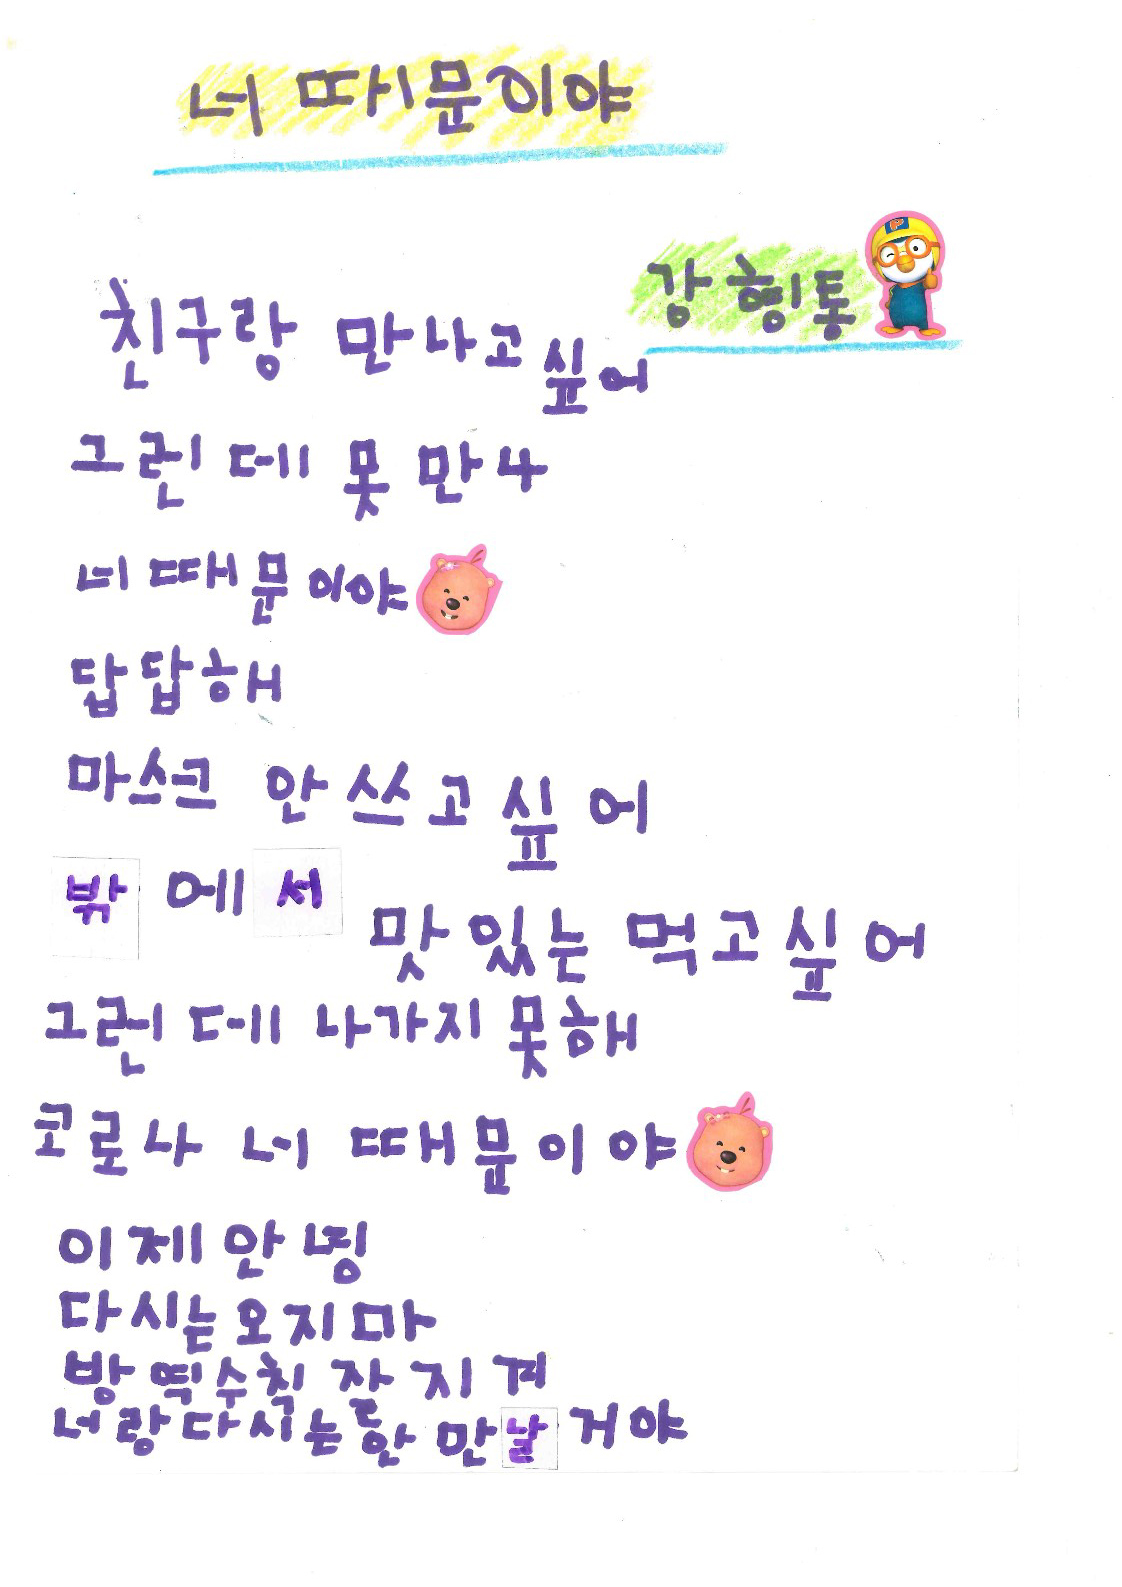 너 때문이야
강형통
친구랑 만나고싶어
그런데 못 만나
너 때문이야
답답해
마스크 안 쓰고싶어
밖에서 맛있는 먹고싶어
그런데 나가지 못해
코로나 너 때문이야
이제 안녕
다시는 오지마
방역수칙 잘 지켜
너랑 다시는 안 만날 거야